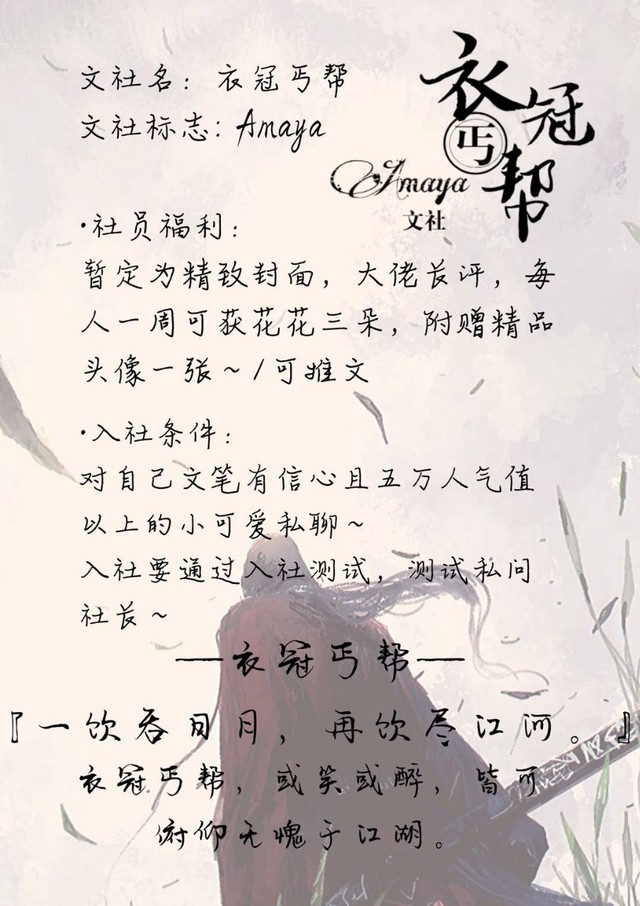 文社名：衣冠丐帮
文社标志：Amaya
衣冠
丐帮
Amaya
文社
·社员福利：
暂定为精致封面，大佬长评，每
人一周可获花花三朵，附赠精品
头像一张～/可推文
·入社条件：
对自己文笔有信心且五万人气值
以上的小可爱私聊～
入社要通过入社测试，测试私问
社长～
——衣冠丐帮——
『一饮吞日月，再饮尽江河。』
衣冠丐帮，或笑或醉，皆可
俯仰无愧于江湖。